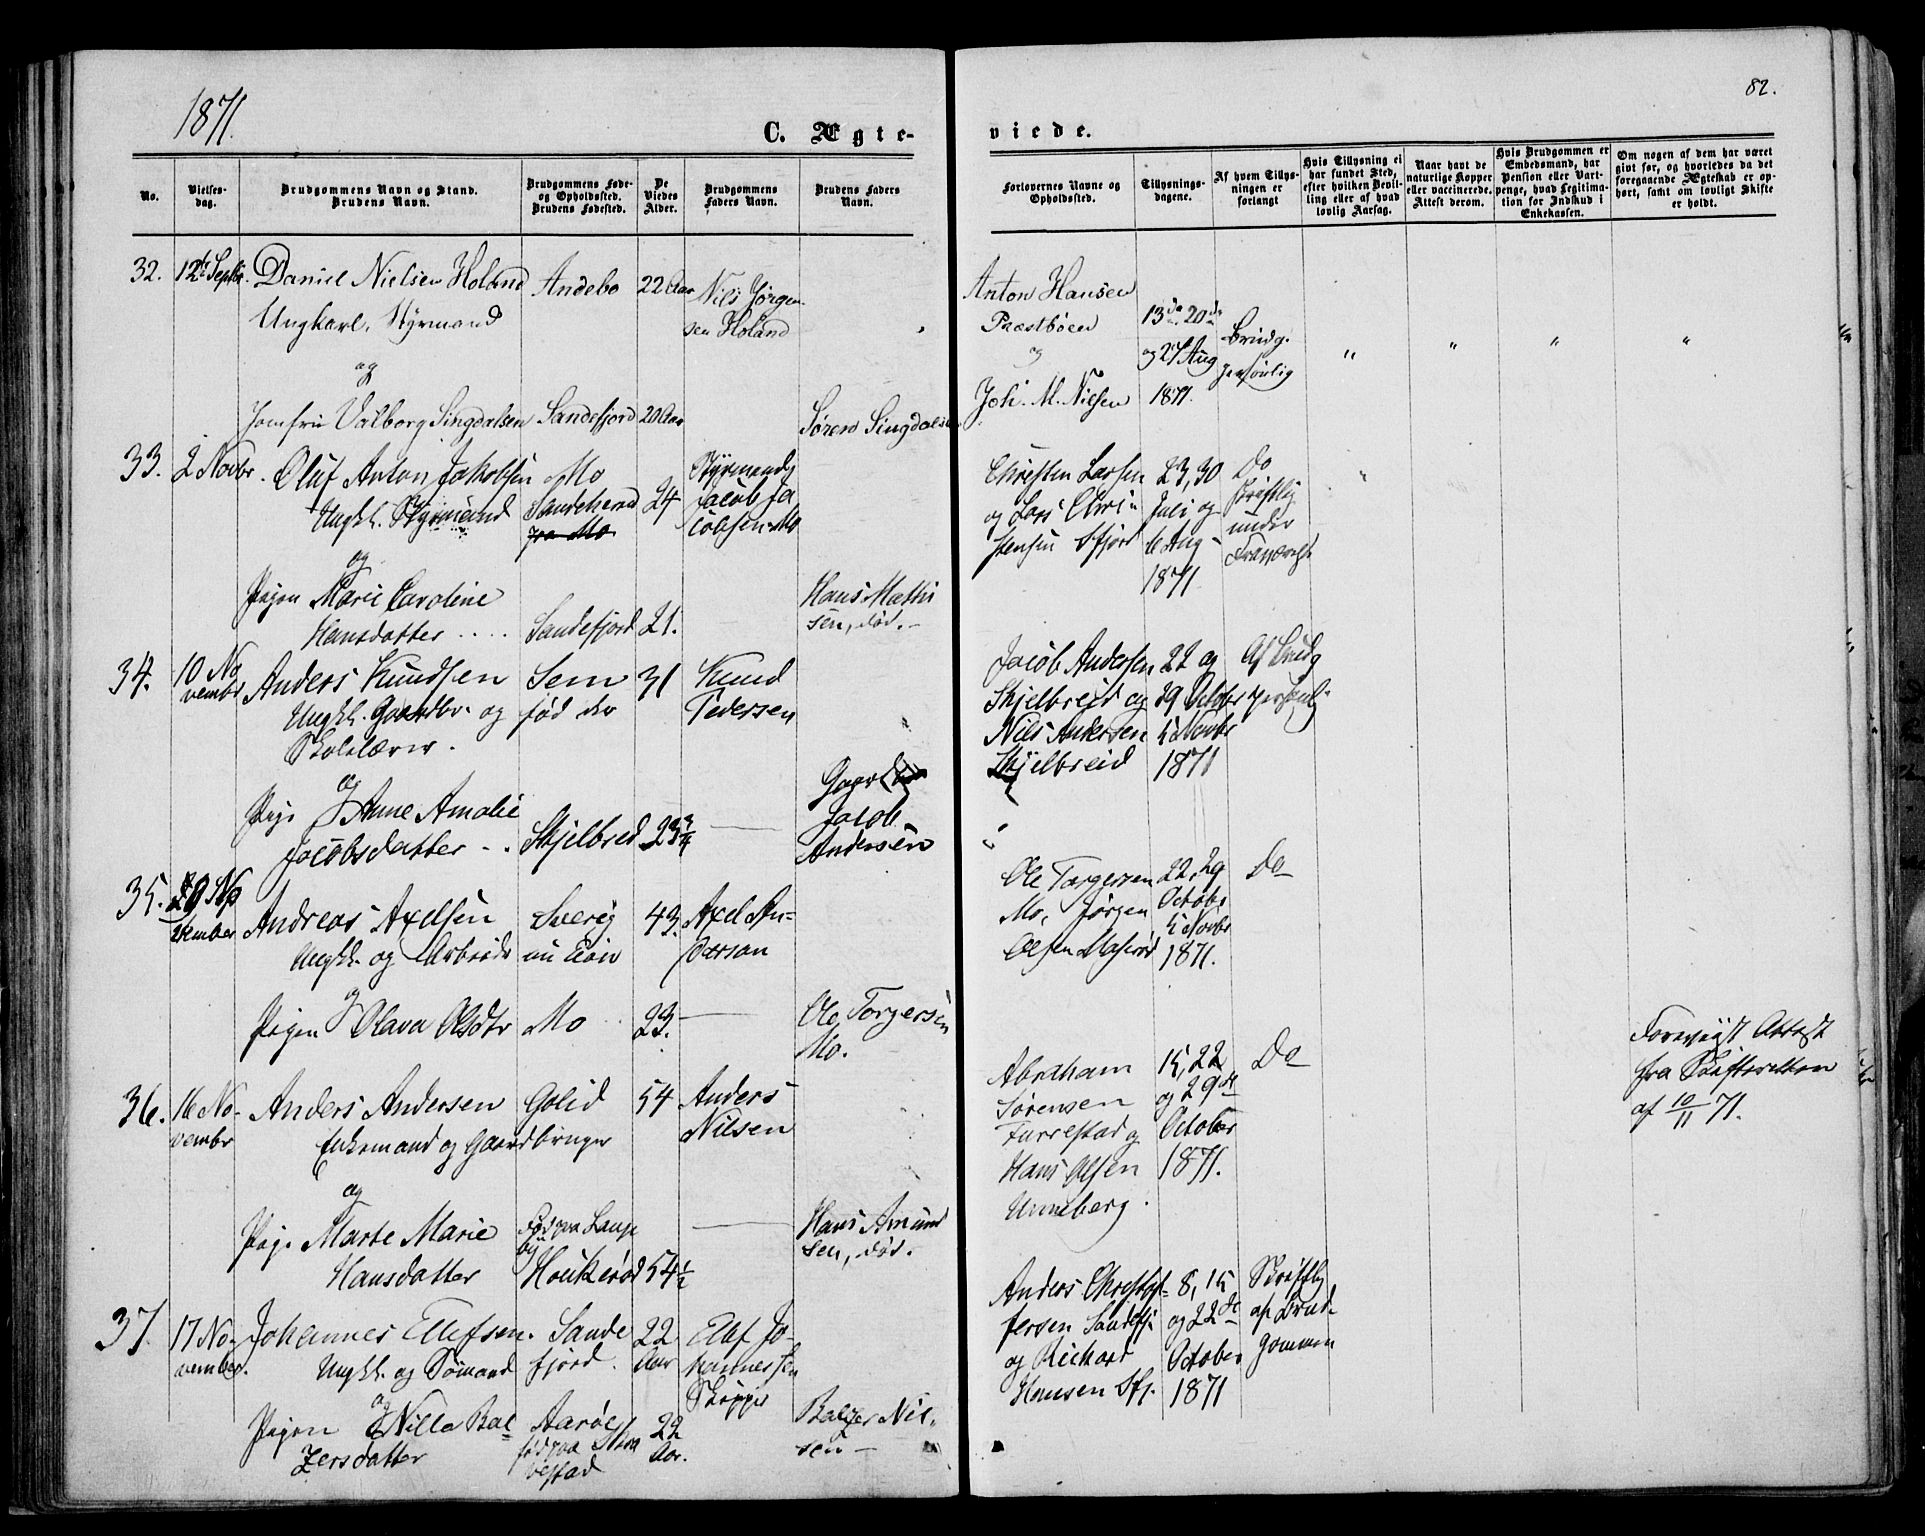 1871.
82.
C. Ægte-
viede.
No.
Vielses-
dag.
Brudgommens Navn og Stand.
Brudens Navn.
Brudgommens Føde-
og Opholdssted.
Brudens Fødested.
De
Viedes
Alder.
Brudgommens
Faders Navn.
Brudens Faders
Navn.
Forlovernes Navne og
Opholdssted.
Tillysnings-
dagene.
Af hvem Tillys-
ningen er
forlangt
Hvis Tillysning ei
har fundet Sted,
efter hvilken Bevil-
ling eller af hvad
lovlig Aarsag.
Naar havt de
naturlige Kopper
eller vaccinerede.
Attest derom.
Hvis Brudgommen er
Embedsmand, har
Pension eller Vart-
penge, hvad Legitima-
tion for Indskud i
Enkekassen.
Om nogen af dem har været
givt før, og hvorledes da det
foregaaende Ægteskab er op-
hørt, samt om lovligt Skifte
er holdt.
32.
12te Septbr.
Daniel Nielsen Holand
Ungkarl, Styrmand
og
Jomfru Valborg Singdalsen
Andebo
Sandefjord
22 Aar
20 Aar
Nils Jørgen-
sen Holand
Søren Singdalsen
Anton Hansen
Præstbøen
og
Joh. M. Nielsen
13de 20de
og 27 Aug
1871.
Brudg.
personlig
" " " "
33.
2 Novbr.
Oluf Anton Jakobsen
Ungk. Styrmand
og
Pigen Marie Caroline
Hansdatter
Mo
Sandeherred
fra Mo
Sandefjord
24
21.
Styrmand
Jacob Ja
cobsen Mo
Hans Mathi
sen, død.
Christen Larsen
og Lars Chri-
stensen Sfjord
23, 30
Juli og
6 Aug
1871
Do
skriftlig
under
Fraværelse
34.
10 No
vembr
Anders Knudsen
Ungk. Gaardbr. og
Skolelærer.
og
Pige Anne Amalie
Jacobsdatter
Sem
fød der
Skjelbred
31
23 3/4
Knud
Pedersen
Jacob
Andersen
Jacob Andersen
Skjelbreid og
Nils Andersen
Skjelbreid
22 og
29 October
5 Novbr
1871
Af Brudg
personl.
35.
vember
Andreas Axelsen
Ungk. og Arbeide
og
Pigen Olava Olsdtr
Sverig
Mo
43.
23.
Axel An-
derson
Ole Torgersen
Mo.
Ole Torgersen
Mo, Jørgen
Olsen
22, 29
October
5 Novbr
1871.
Do
36.
16 No-
vembr
Anders Andersen
Enkemand og Gaardbruger
og
Pige Marte Marie
Hansdatter
Golid
Fød paa Lauge
by
Houkerød
54
54 1/2
Anders
Nilsen
Hans Amund
sen, død.
Abraham
Sørensen
Furrestad og
Hans Olsen
Unneberg.
15, 22
og 29de
October
1871.
Do
Forevist Attest
fra Skifteretten
af 10/11 71.
37.
17 No-
vember.
Johannes Ellefsen.
Ungk. og Sømand
og
Pigen Nilla Bal
zersdatter
Sande
fjord.
Aarøe
fød paa
vestad
22
Aar
22
Aar.
Ellef Jo-
hannessen
Skipper
Balzer Nil-
sen
Anders Christof-
fersen Sandefj.
og Richard
Hansen Sfj.
8, 15
og 22de
October
1871
Skriftlig
af Brud-
gommen